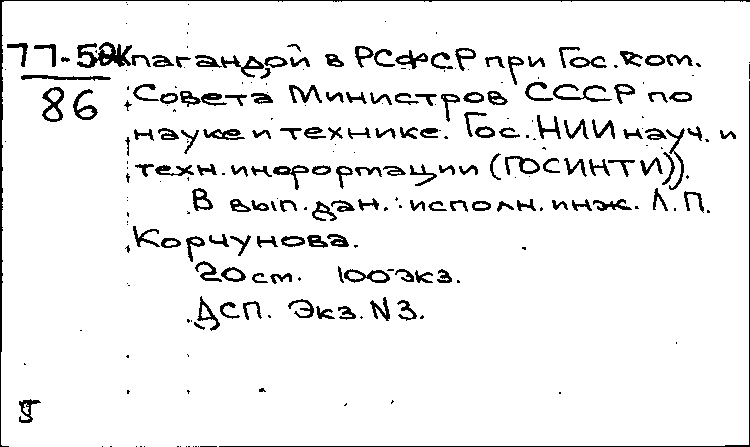 77-5ДК пагандой в РСФСР при Гос. ком.
86 Совета Министров СССР по
науке и технике. Гос. НИИ науч. и
техн. информации (ГОСИНТИ)).
В вып. дан.: исполн. инж. Л.П.
Корчунова.
20 ст. 100 экз.
ДСП. Экз. N3.